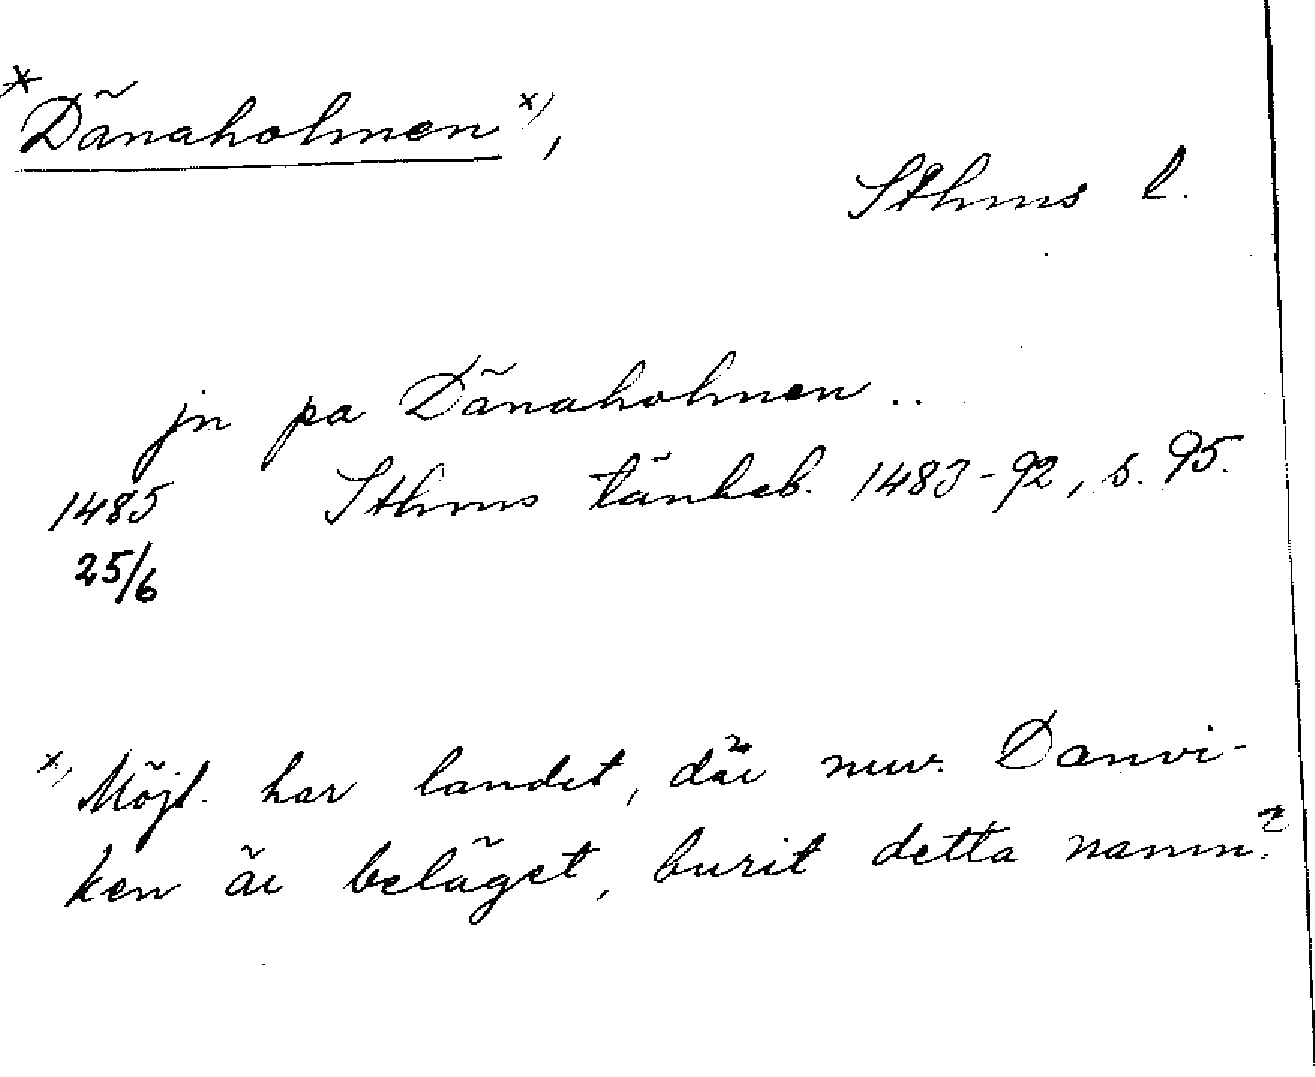 *Dänaholmen x),
Sthms l.
jn pa Dänaholmen ..
1485 Sthms tänkeb. 1483-92, s. 95.
25/6
x) Möjl. har landet, där nuv. Danvi-
ken är beläget, burit detta namn.?